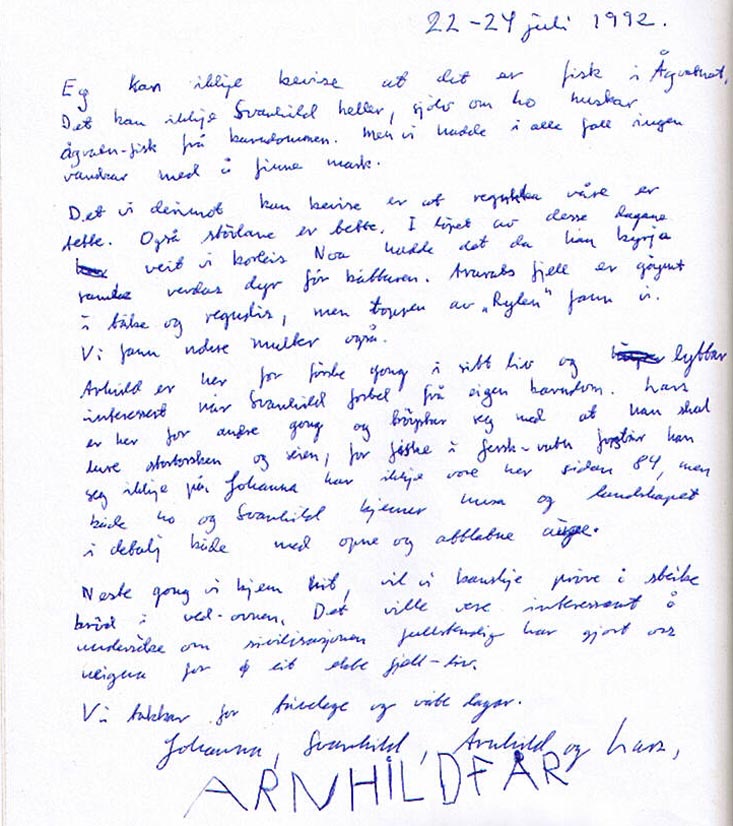 22-24 juli 1992.
Eg kan ikkje bevise at det er fisk i Ågvatnet,
Det kan ikkje Svanhild heller, sjølv om ho huskar
ågvatn-fisk frå barndommen. Men vi hadde i alle fall ingen
vanskar med å finne mark.
Det vi derimot kan bevise er at regnklea våre er
tette. Også støvlane er tette. I løpet av desse dagane
veit vi korleis Noa hadde det da han byrja
samla verdas dyr før båtturen. Ararats fjell er gøymt
i tåke og regndis, men toppen av "Rylen" fann vi.
Vi fann ndere multer også.
Arnhild er her for første gong i sitt liv og lyttar
interessert når Svanhild fortel frå eigen barndom. Lars
er her for andre gong og trøystar seg med at han skal
lure stortorsken og seien, for fiske i fersk-vatn forstår han
seg ikkje på. Johanna har ikkje vore her sidan 84, men
både ho og Svanhild kjenner husa og landskapet
i detalj både med opne og attlatne auge.
Neste gong vi kjem hit, vil vi kanskje prøve å steike
brød i ved-ovnen. Det ville vere interessant å
undersøke om sivilisasjonen fullstendig har gjort oss
ueigna for eit ekte fjell-liv.
Vi takkar for triveloge og våte dagar.
Johanna, Svanhild, Arnhild og Lars,
ARNHILDFÅR